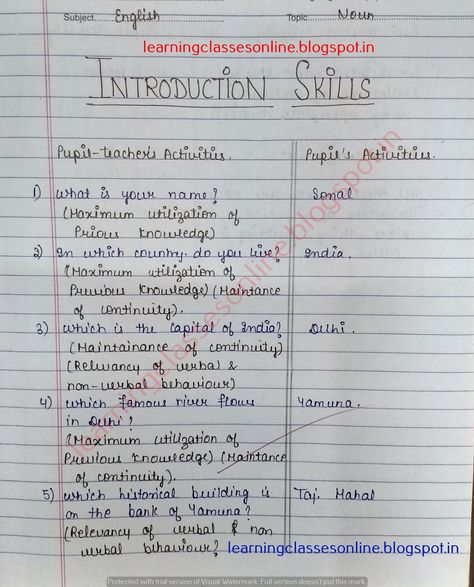 Subject English Topic Noun
learningclassesonline.blogspot.in
INTRODUCTION SKILLS
Pupil-teacher's Activities. Pupil's Activities.
1) What is your name? Sonal
(Maximum utilization of
Prious Knowledge)
2) In which country do you live? India.
(Maximum utilization of
Previous Knowledge) (Maintance
of continuity).
3) Which is the capital of India? Delhi.
(Maintainance of continuity)
(Relevancy of verbal &
non-verbal behaviour)
4) Which famous river flows Yamuna.
in Delhi?
(Maximum utilization of
Previous Knowledge) (Maintance
of continuity).
5) Which historical building is Taj Mahal
on the bank of Yamuna?
(Relevancy of verbal & non
verbal behaviour? learningclassesonline.blogspot.in
learningclassesonline.blogspot.in
Protected with trial version of Visual Watermark. Full version doesn't put this mark.